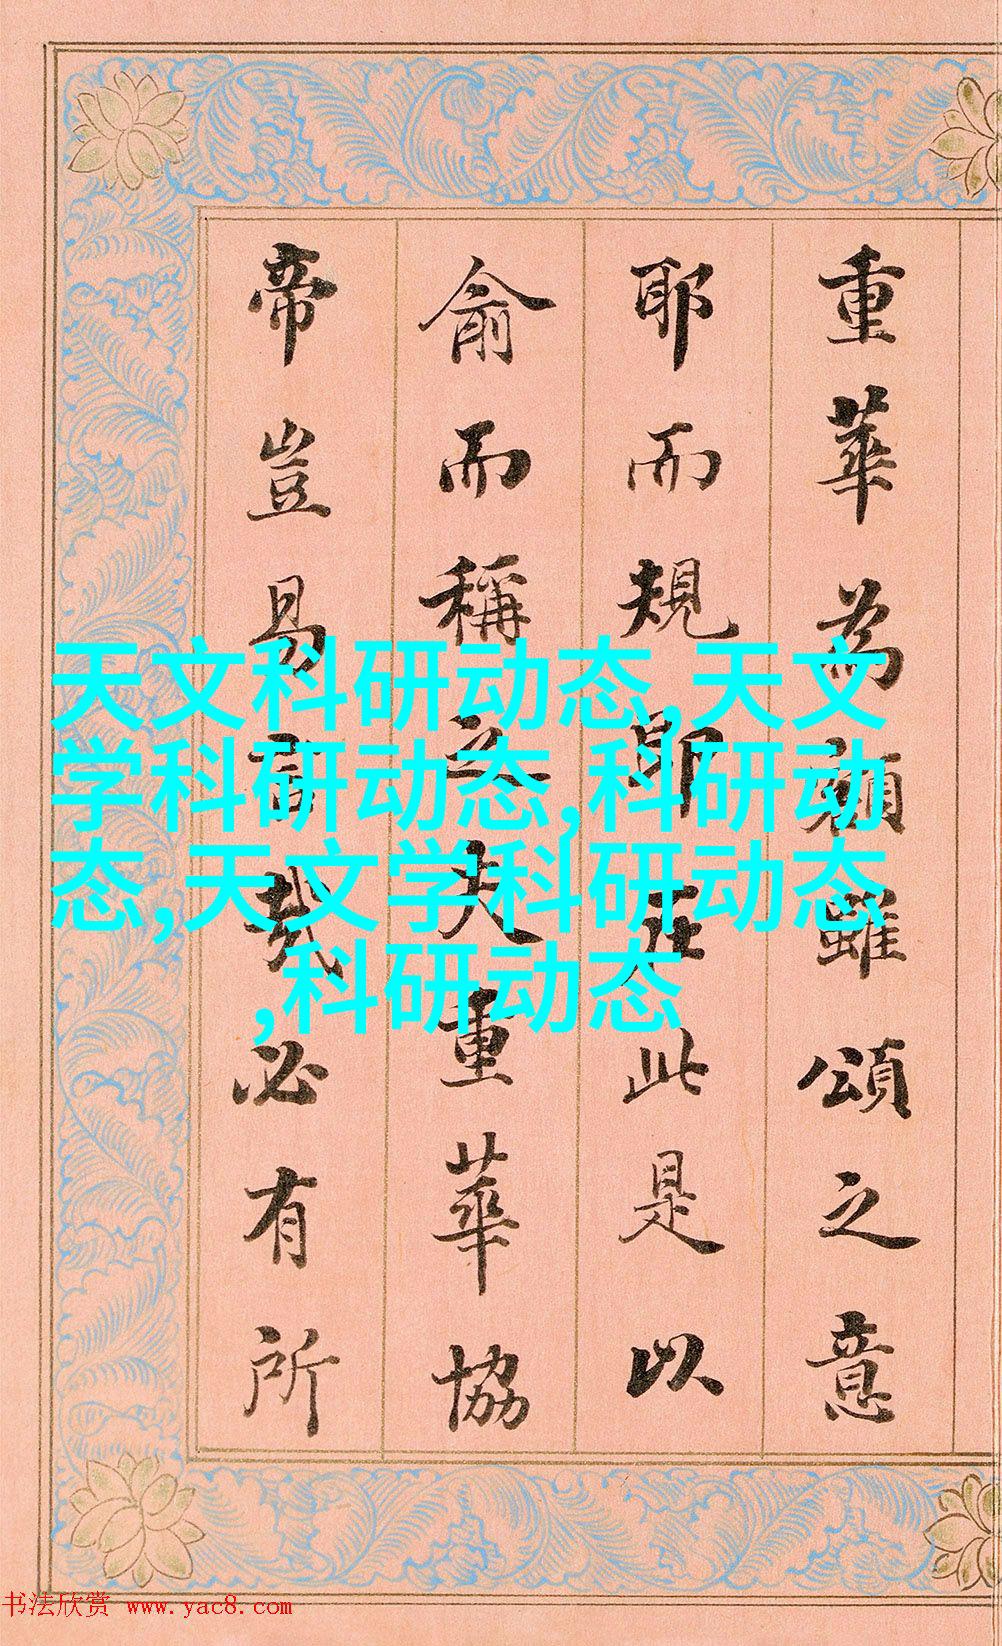 重華為額雖頌之意
耶而規即在此是以
俞而稱之夫重華協
帝豈易言哉必有所
天文科研动态,天文
学科研动态,科研动
态,天文学科研动态
,科研动态
书法欣赏 www.yac8.com